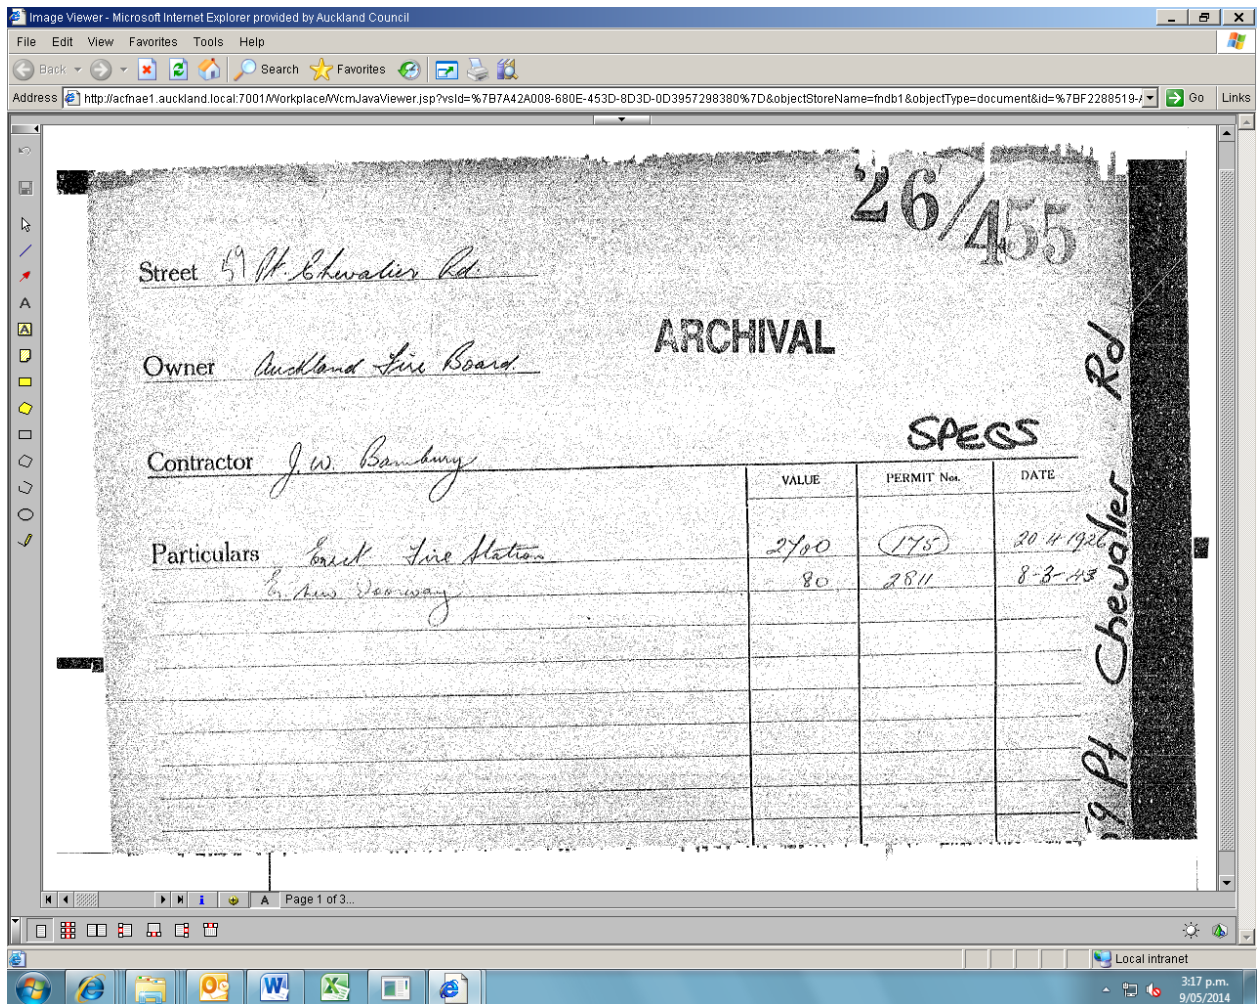 Image Viewer - Microsoft Internet Explorer provided by Auckland Council
File Edit View Favorites Tools Help
Back Search Favorites
Address http://acfnae1.auckland.local:7001/Workplace/WcmJavaViewer.jsp?vsId=%7B7A42A008-680E-453D-8D3D-0D3957298380%7D&objectStoreName=fndb1&objectType=document&id=%7BF2288519-A Go Links
26/455
Street 59 Pt. Chevalier Rd.
ARCHIVAL
Owner Auckland Fire Board.
SPECS
Contractor J. W. Bambury
VALUE PERMIT Nos. DATE
Particulars Erect Fire Station 2700 175 20-4-1926
New Doorway 80 2811 8-3-43
59 Pt Chevalier Rd
A Page 1 of 3...
Local intranet
3:17 p.m.
9/05/2014